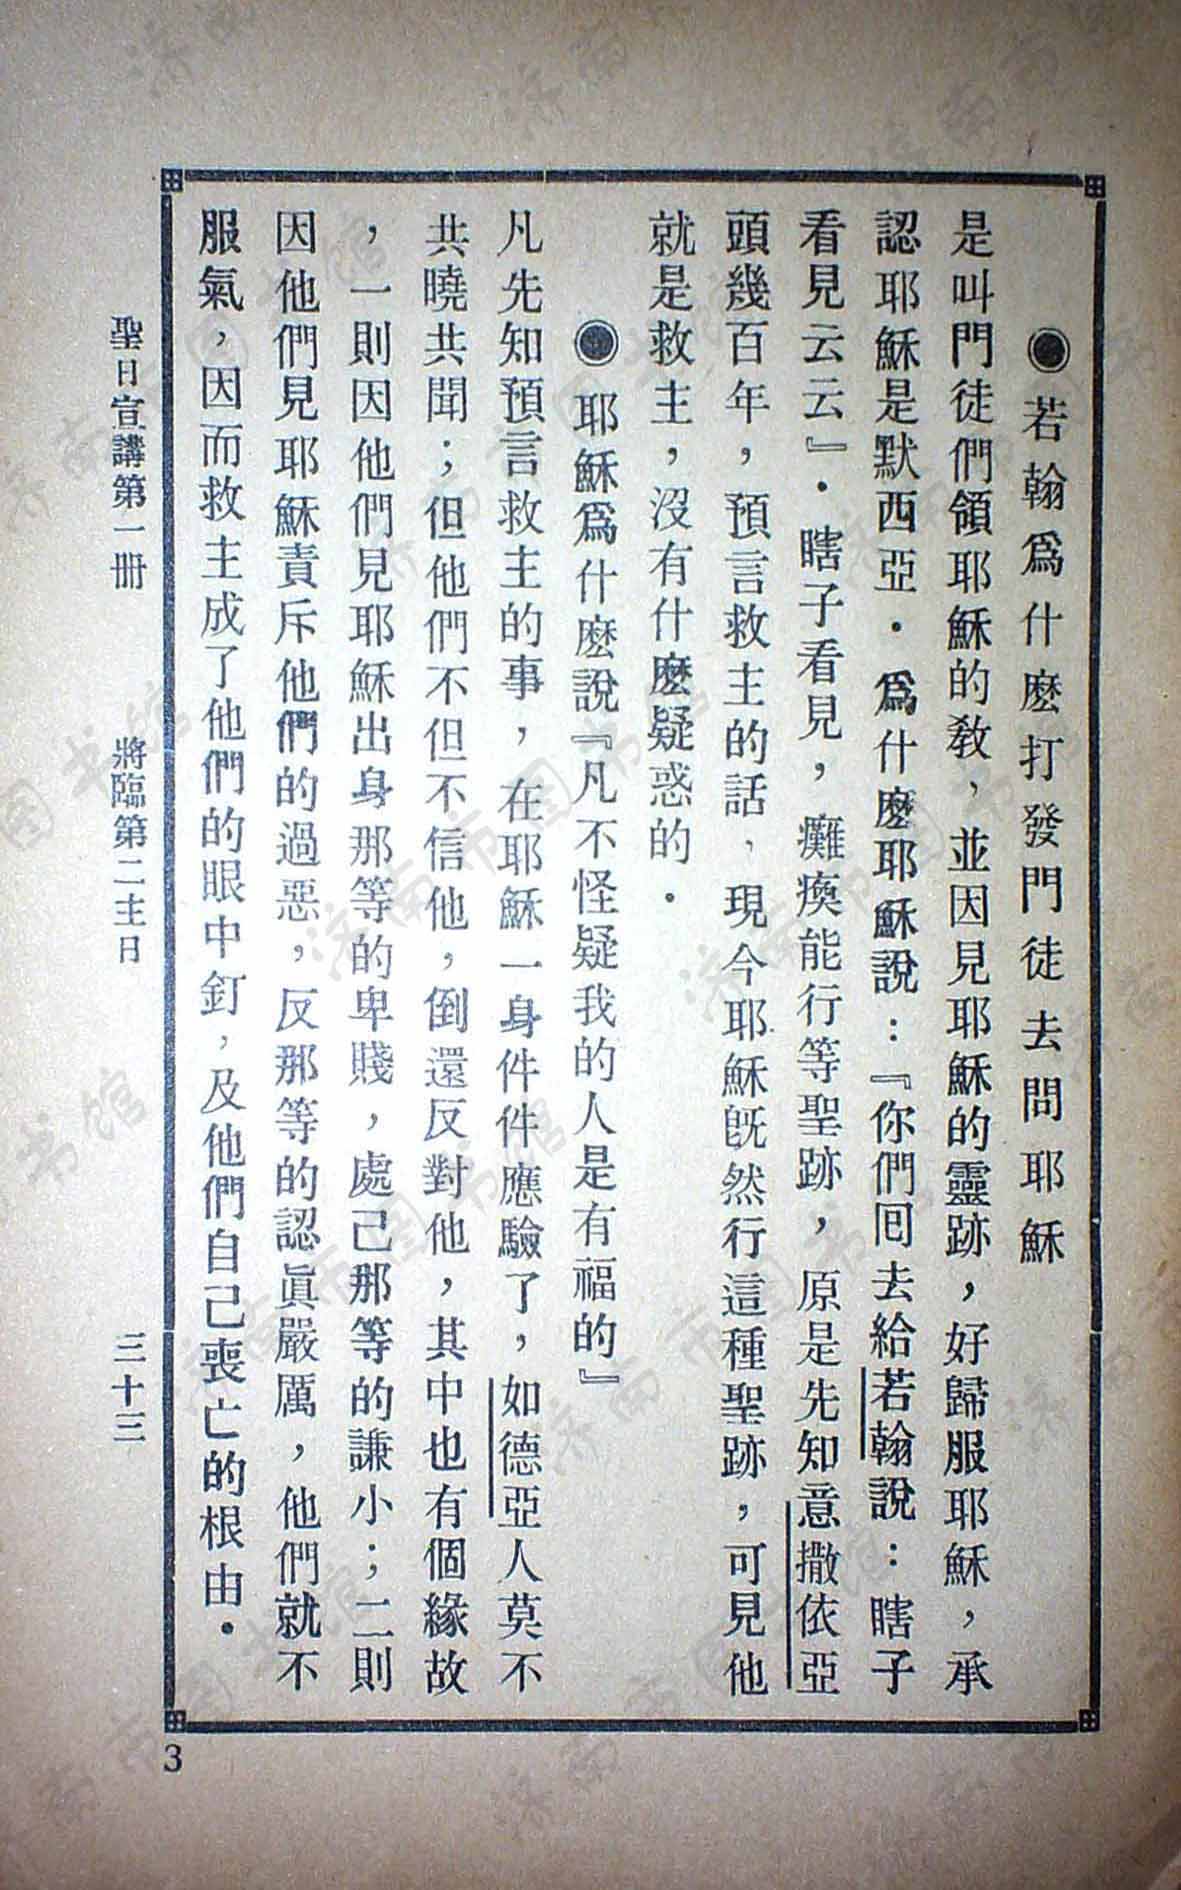 ◉若翰爲什麽打發門徒去問耶穌
是叫門徒們領耶穌的敎，並因見耶穌的靈跡，好歸服耶穌，承
認耶穌是默西亞．爲什麽耶穌說：『你們囘去給若翰說：瞎子
看見云云』．瞎子看見，癱瘓能行等聖跡，原是先知意撒依亞
頭幾百年，預言救主的話，現今耶穌旣然行這種聖跡，可見他
就是救主，沒有什麽疑惑的．
◉耶穌爲什麽說『凡不怪疑我的人是有福的』
凡先知預言救主的事，在耶穌一身件件應驗了，如德亞人莫不
共曉共聞；但他們不但不信他，倒還反對他，其中也有個緣故
，一則因他們見耶穌出身那等的卑賤，處己那等的謙小；二則
因他們見耶穌責斥他們的過惡，反那等的認眞嚴厲，他們就不
服氣，因而救主成了他們的眼中釘，及他們自己喪亡的根由．
聖日宣講第一冊 將臨第二主日 三十三
3
济南市图书馆